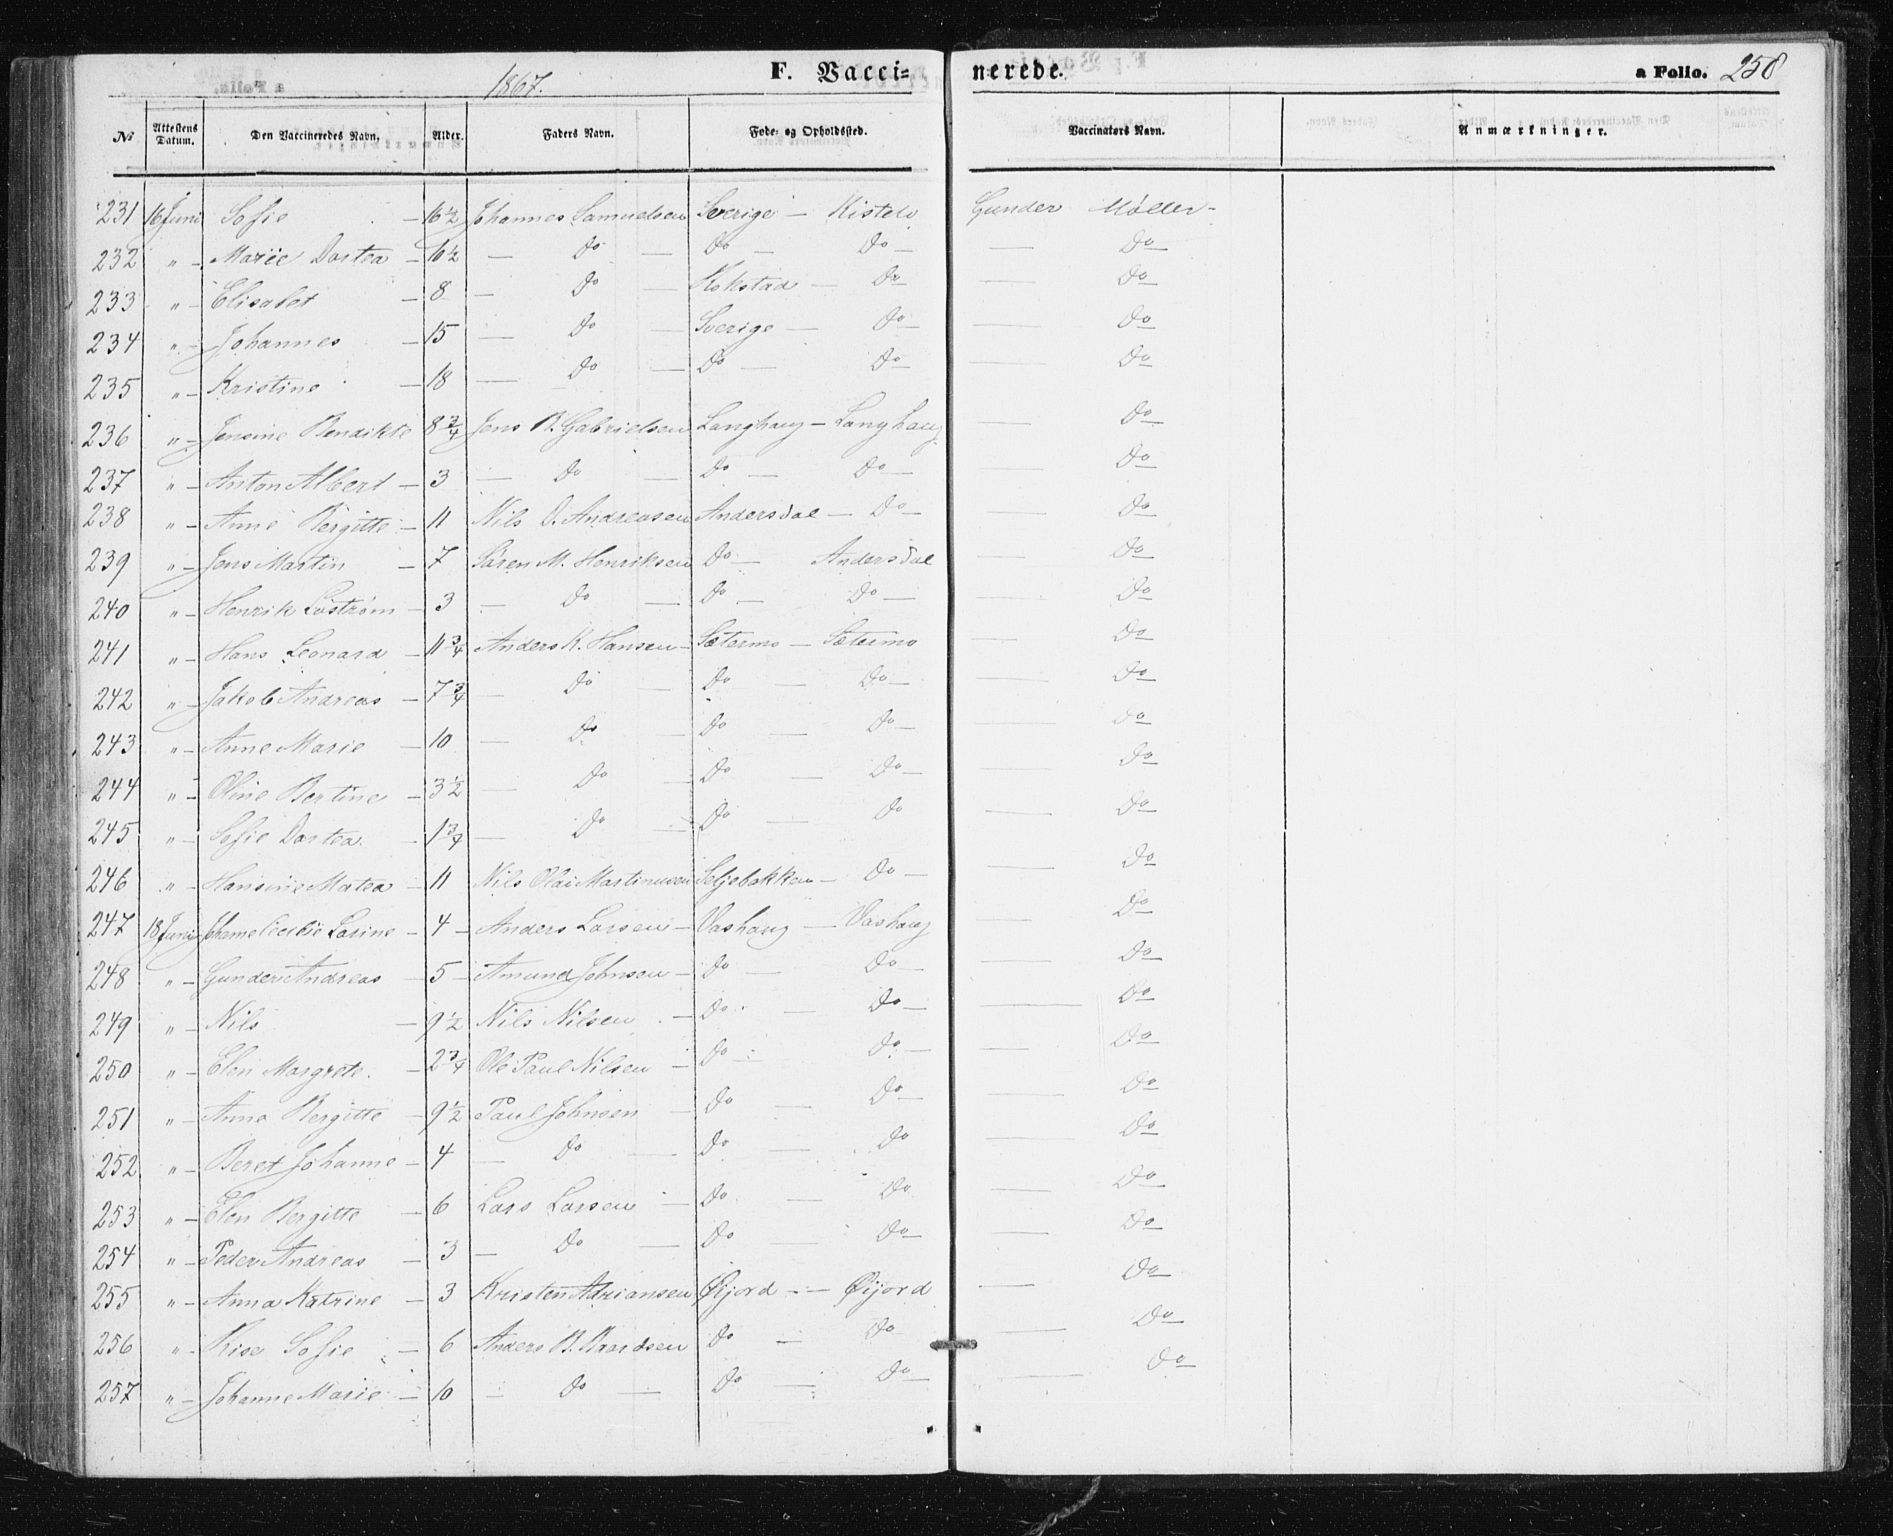 1867. F. Vaccinerede. a Folio. 258
No Attestens Datum. Den Vaccineredes Navn. Alder. Faders Navn. Føde- og Opholdssted. Vaccinatørs Navn. Anmærkninger.
231 16 Juni Sofie — 16½ Johannes Samuelsen Sverige — Gunder Møller -
232 " - Marie Dortea - 16½ — Do — Do — Do — — Do
233 " - Elisabet - 8 — Do — Kokstad — Do — Do
234 " - Johannes - 15 — Do — Sverige — Do — — Do
235 " - Kristine - 18 — Do — Do — Do — — Do
236 " - Jensine Bendikte 8¾ Jens B. Gabrielsen Langhaug — Langhaug — Do
237 " - Anton Albert - 3 — Do — Do — Do — — Do
238 " - Anne Bergitte - 11 Nils D. Andreasen Andersdal — Do — — Do
239 " - Jens Martin - 7 Søren M. Henriksen Do — Andersdal — Do
240 " - Henrik - 3 — Do — Do — Do — — Do
241 " - Hans Leonard - 11¾ Anders K. Hansen - Sætermo — Sætermo — Do
242 " - Jakob Andreas - 7¾ — Do — Do — Do — — Do
243 " - Anne Marie - 10 — Do — Do — Do — — Do
244 " - Oline Bertine - 3½ — Do — Do — Do — — Do
245 " - Sofie Dortea. - 1¾ — Do — Do — Do — Do
246 " - Hansine Matea - 11 Nils Olai Martinusen Seljebakken — Do — — Do
247 18 Juni Johanne Cecilie Larine - 4 - Anders Larsen - Vashaug — Vashaug — Do
248 " - Gunder Andreas - 5 - Amund Johnsen - Do — Do — — Do
249 " - Nils - 9½ Nils Nilsen - Do — Do — — Do
250 " - Elen Margrete. - 2¾ Ole Paul Nilsen - Do — Do — — Do
251 " - Anna Bergitte - 9½ Paul Johnsen - Do — Do — — Do
252 " - Beret Johanne - 4 — Do — Do — Do — Do
253 " - Elen Bergitte - 6 Lars Larsen — Do — Do — Do
254 " - Peder Andreas - 3 — Do — Do — Do — — Do
255 " - Anna Katrine - 3 Kristen Adriansen Øijord — Øijord — Do
256 " - Sofie - 6 Anders B. Baardsen Do — Do — — Do
257 " - Johanne Marie - 10 - Do — Do — Do — — Do